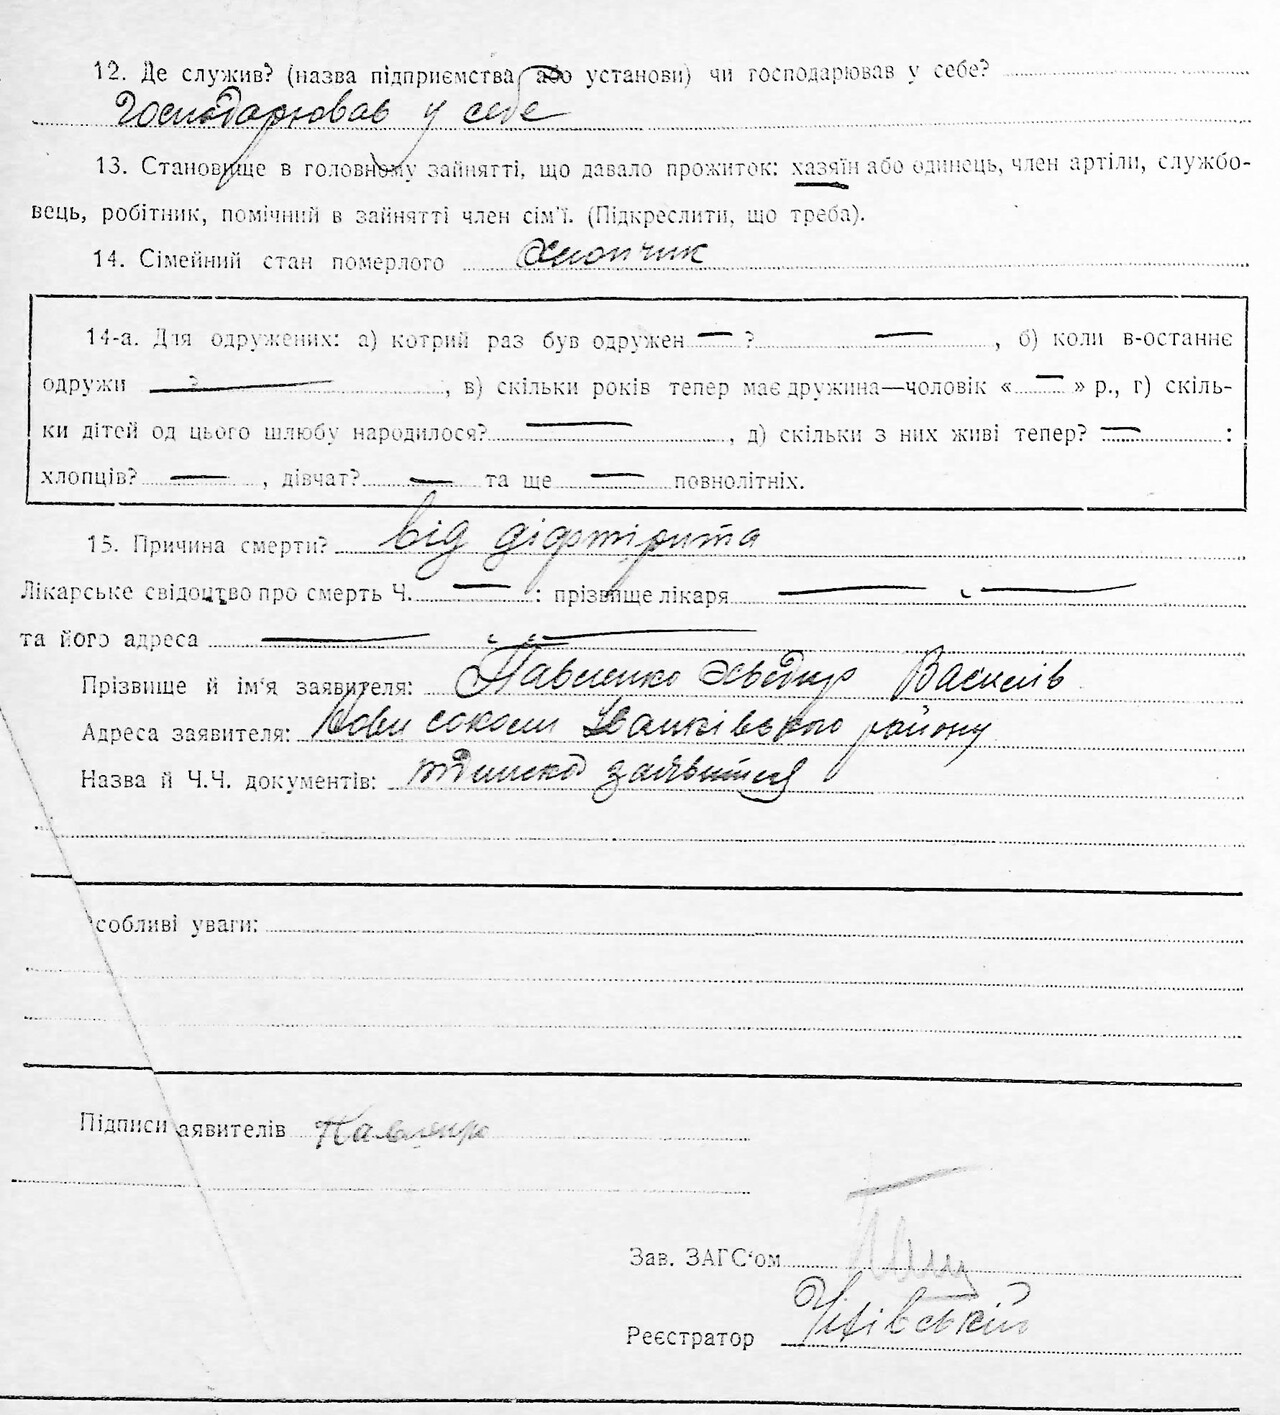 12. Де служив? (назва підприємства або установи) чи господарював у себе?
Господарював у себе
13. Становище в головному зайнятті, що давало прожиток: хазяїн або одинець, член артіли, службо-
вець, робітник, помічний в зайнятті член сім'ї. (Підкреслити, що треба).
14. Сімейний стан померлого Хлопчик
14-а. Для одружених: а) котрий раз був одружен — ? — , б) коли в-останнє
одружи — ? — , в) скільки років тепер має дружина—чоловік « — » р., г) скіль-
ки дітей од цього шлюбу народилося? — , д) скільки з них живі тепер? — :
хлопців? — , дівчат? — та ще — повнолітніх.
15. Причина смерти? від діфтірита
Лікарське свідоцтво про смерть Ч. — : прізвище лікаря — —
та його адреса — —
Прізвище й ім'я заявителя: Павленко Хведир Василів
Адреса заявителя: Нови соколи Іванківського району
Назва й Ч.Ч. документів: заявителя
собливі уваги:
Підписи аявителів Павленко
Зав. ЗАГС'ом
Реєстратор